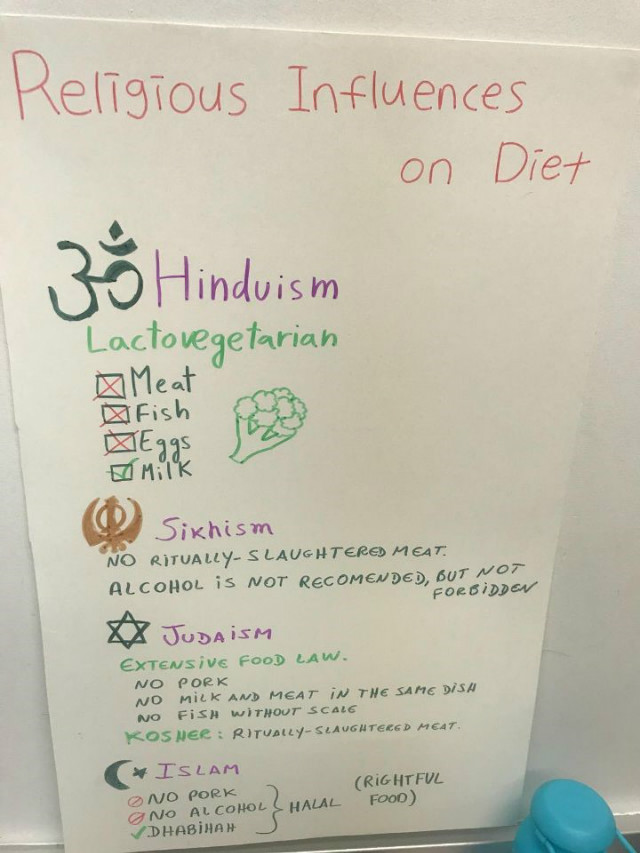 Religious Influences
on Diet
ॐ Hinduism
Lactovegetarian
Meat
Fish
Eggs
Milk
Sikhism
NO RITUALLY-SLAUGHTERED MEAT.
ALCOHOL IS NOT RECOMENDED, BUT NOT
FORBIDDEN
JUDAISM
EXTENSIVE FOOD LAW.
NO PORK
NO MILK AND MEAT IN THE SAME DISH
NO FISH WITHOUT SCALE
KOSHER: RITUALLY-SLAUGHTERED MEAT.
ISLAM
NO PORK
NO ALCOHOL
DHABIHAH
HALAL
(RIGHTFUL
FOOD)